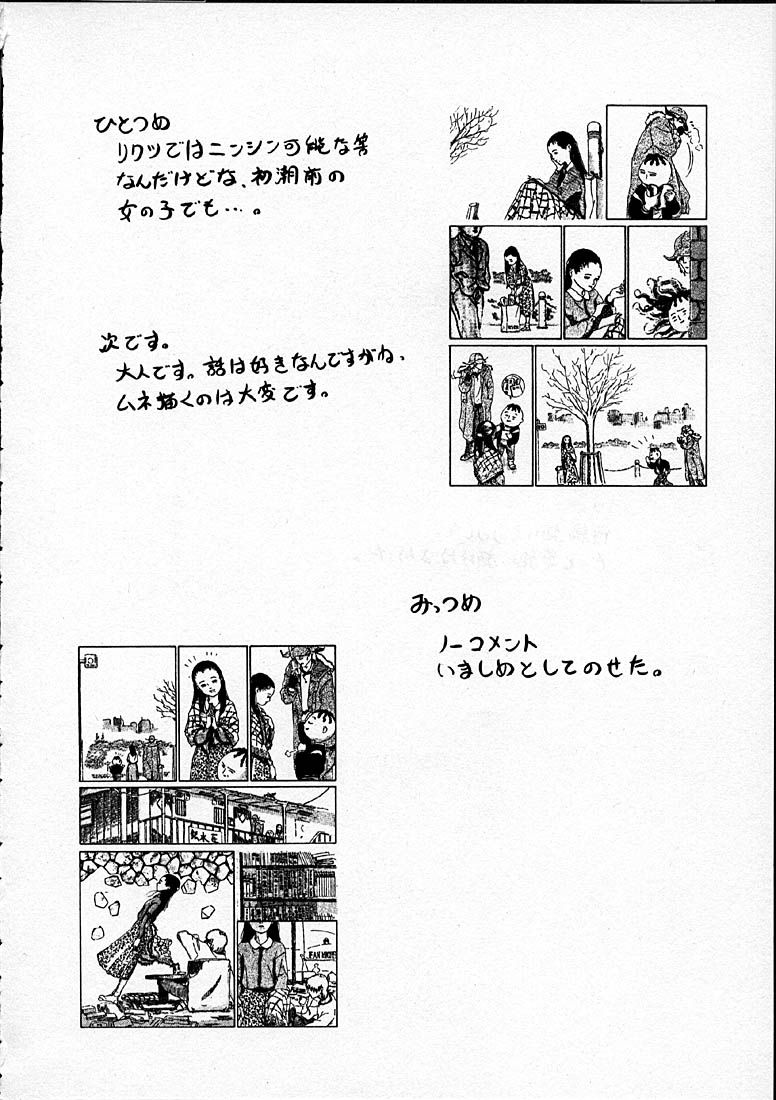 ひとつめ
リクツではニンシン可能な筈
なんだけどな、初潮前の
女の子でも…。
次です。
大人です。話は好きなんですがね、
ムネ描くのは大変です。
みっつめ
ノーコメント
いましめとしてのせた。